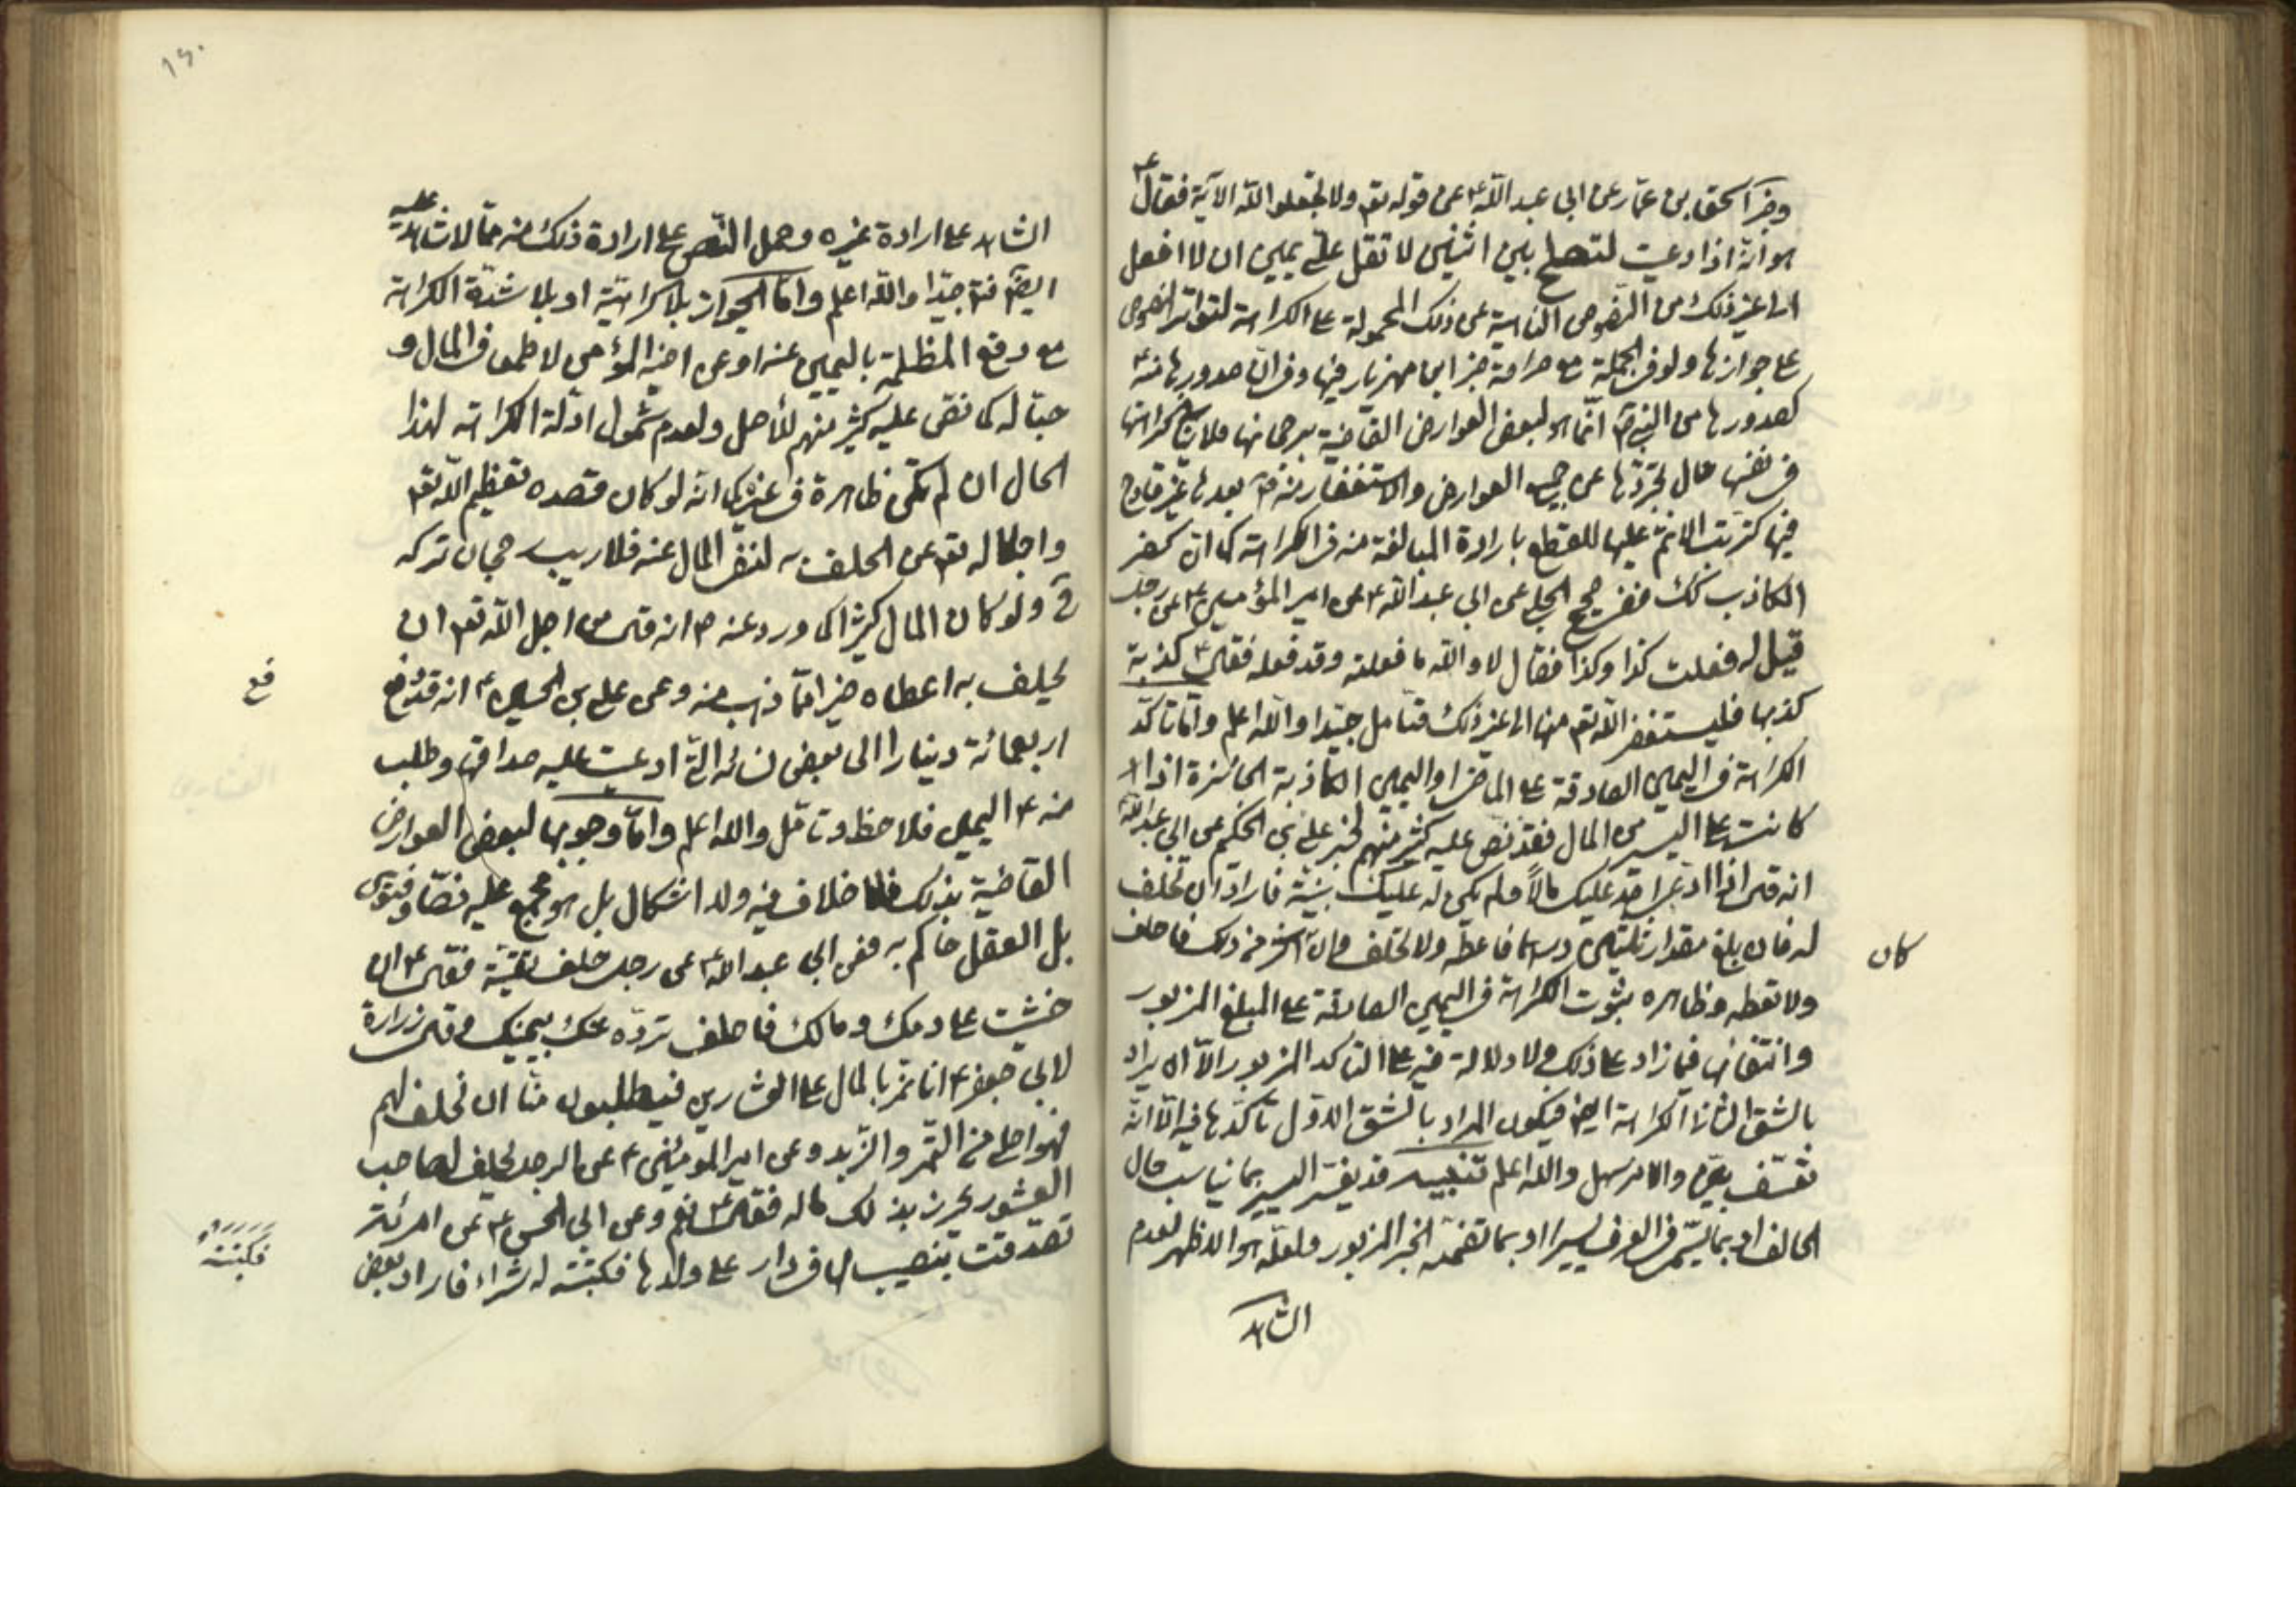 وخبر اسحق بن عمار عن ابي عبد الله ع عن قوله تع ولا تجعلوا الله الآية فقال ع
هو انه اذا دعيت لتصلح بين اثنين لا تقل علي يمين ان لا افعل
الى غير ذلك من النصوص الناهية عن ذلك المحمولة على الكراهة لتواتر النصوص
على جوازها ولو في الجملة مع صراحة خبر ابن مهزيار فيها وفي ان صدورها منه ع
كصدورها من النبي ص انما هو لبعض العوارض القاضية برجحانها فلا ينافي كراهتها
في نفسها حال تجردها عن جميع العوارض والاستغفار منه بعدها غير قادح
فيها كترتب الاثم عليها للقطع بارادة المبالغة منه في الكراهة كما ان كفر
الكاذب كك ففي صحيح الحلبي عن ابي عبد الله ع عن امير المؤمنين ع عن رجل
قيل له فعلت كذا وكذا فقال لا والله ما فعلته وقد فعله فقال ع كذبة
كذبها فليستغفر الله تع منها الى غير ذلك فتامل جيدا والله اعلم واما تاكد
الكراهة في اليمين الصادقة على الماضي او اليمين الكاذبة الجائزة اذا
كانت على اليسير من المال فقد نص عليه كثير منهم لخبر علي بن الحكم عن ابي عبد الله ع
انه قال اذا ادعى احد عليك مالاً ولم يكن له عليك بينة فاراد ان تحلف
له فان بلغ مقدار ثلثين درهما فاعطه ولا تحلف وان كان اكثر من ذلك فاحلف
كان
ولا تعطه وظاهره ثبوت الكراهة في اليمين الصادقة على المبلغ المزبور
وانتفائها فيما زاد على ذلك ولا دلالة فيه على التاكد المزبور الا ان يراد
بالشق الثاني الكراهة ايضا فيكون المراد بالشق الاول تاكدها فيه الا انه
تعسف بين والامر سهل والله اعلم تنبيه قد يفسر اليسير بما يناسب حال
الحالف او بما يسمى في العرف يسيرا او بما تضمنه الخبر المزبور ولعله هو الاظهر لعدم
الشاهد
١٤٠
الشاهد على ارادة غيره وحمل النص على ارادة ذلك منه مما لا شاهد عليه
ايضا فتامل جيدا والله اعلم واما الجواز بلا كراهية او بلا شدة الكراهة
مع دفع المظلمة باليمين عنه او عن اخيه المؤمن لا طمعا في المال و
حبا له كما نص عليه كثير منهم للاصل ولعدم شمول ادلة الكراهة لهذا
الحال ان لم تكن ظاهرة في غيره كما انه لو كان قصده تعظيم الله تع
واجلاله تع عن الحلف به لنفي المال عنه فلا ريب رجحان تركه
ح ولو كان المال كثيرا كما ورد عنه ص انه قال من اجل الله تع ان
يحلف به اعطاه خيرا مما ذهب منه وعن علي بن الحسين ع انه قد دفع
فع
اربعمائة دينارا الى بعض نسائه التي ادعت عليه صداقها وطلب
منه ع اليمين فلاحظ وتامل والله اعلم واما وجوبها لبعض العوارض
القاضية بذلك فلا خلاف فيه ولا اشكال بل هو مجمع عليه نصا وفتوى
بل العقل حاكم به ففي ابي عبد الله ع عن رجل حلف تقية فقال ع ان
خشيت على دمك ومالك فاحلف ترده عنك بيمينك وقال زرارة
لابي جعفر ع انا نمر بالمال على العشارين فيطلبون منا ان نحلف لهم
فهو احلى من التمر والزبد وعن امير المؤمنين ع عن الرجل يحلف لصاحب
العشور يحرز بذلك ماله فقال ع نعم وعن ابي الحسن ع عن امرئة
تصدقت بنصيب لها في دار على ولدها فكتبته له شراء فاراد بعض
فكتبته